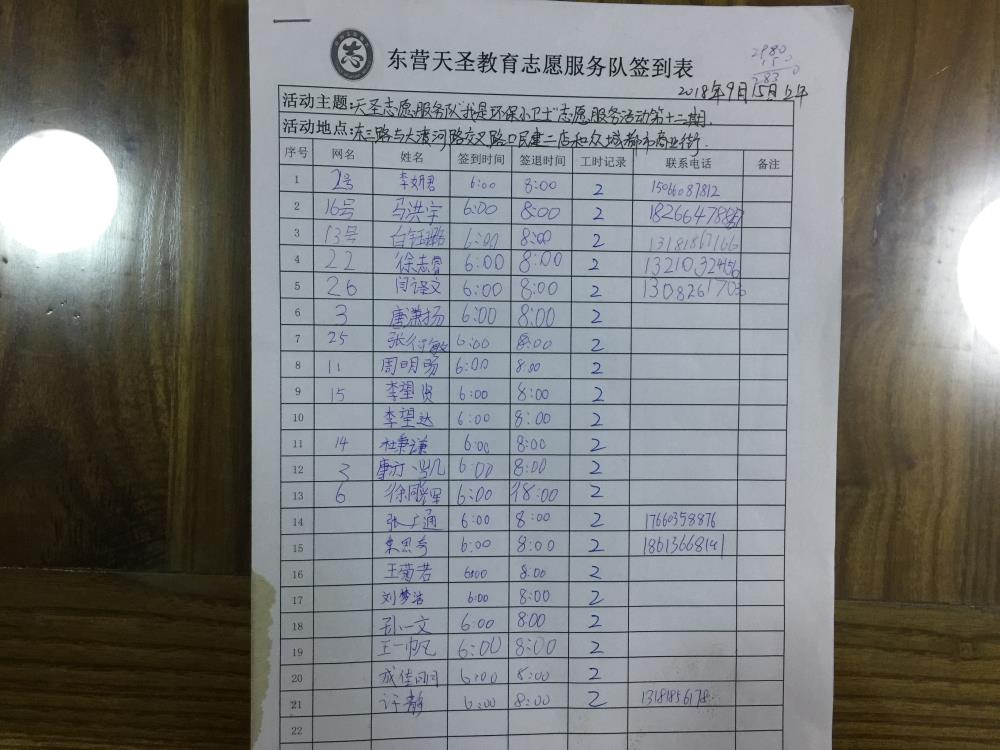 志
东营天圣教育志愿服务队签到表
2980
150
2830
2018年9月15日上午
活动主题:天圣志愿服务队"我是环保小卫士"志愿服务活动第十二期.
活动地点:东三路与大渡河路交叉路口民建二店和众城都市商业街.
序号 网名 姓名 签到时间 签退时间 工时记录 联系电话 备注
1 2号 李妍君 6:00 8:00 2 15066087812
2 16号 马洪宇 6:00 8:00 2
3 13号 白钰璐 6:00 8:00 2 13181867166
4 22 徐志睿 6:00 8:00 2 13210324156
5 26 闫译文 6:00 8:00 2
6 3 唐潇扬 6:00 8:00 2
7 25 张行敏 6:00 8:00 2
8 11 周明旸 6:00 8:00 2
9 15 李望贤 6:00 8:00 2
10 李望达 6:00 8:00 2
11 14 杜秉谦 6:00 8:00 2
12 3 6:00 8:00 2
13 6 徐同辉 6:00 18:00 2
14 张广通 6:00 8:00 2 17660358876
15 朱思奇 6:00 8:00 2 18613668141
16 王菊若 6:00 8:00 2
17 刘梦洁 6:00 8:00 2
18 孙一文 6:00 8:00 2
19 王一帆 6:00 8:00 2
20 成佳 6:00 8:00 2
21 许静 6:00 8:00 2 13181856178
22